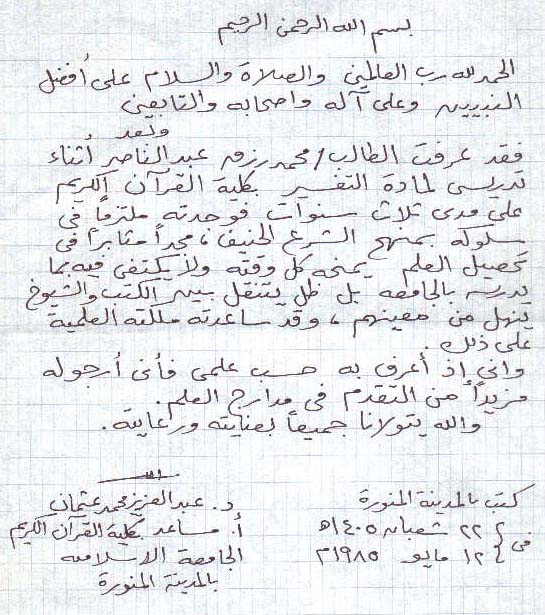 بسم الله الرحمن الرحيم
الحمد لله رب العالمين والصلاة والسلام على أفضل
النبيين وعلى آله واصحابه والتابعين
وبعد
فقد عرفت الطالب/محمد رزق عبد الناصر أثناء
تدريسى لمادة التفسير بكلية القرآن الكريم
على مدى ثلاث سنوات فوجدته ملتزماً في
سلوكه بمنهج الشرع الحنيف، مجداً مثابراً في
تحصيل العلم يمنحه كل وقته ولا يكتفى فيه بما
يدرسه بالجامعه بل ظل يتنقل بين الكتب والشيوخ
ينهل من معينهم، وقد ساعدته ملكته العلمية
على ذلك.
وانى إذ أعرف به حسب علمى فأنى أرجو له
مزيداً من التقدم فى مدارج العلم.
والله يتولانا جميعاً بعنايته ورعايته.
كتب بالمدينة المنورة
في ٢٢ شعبان ١٤٠٥هـ
١٢ مايو ١٩٨٥م
د. عبد العزيز محمد عثمان
أ. مساعد بكلية القرآن الكريم
الجامعة الاسلاميه
بالمدينة المنورة